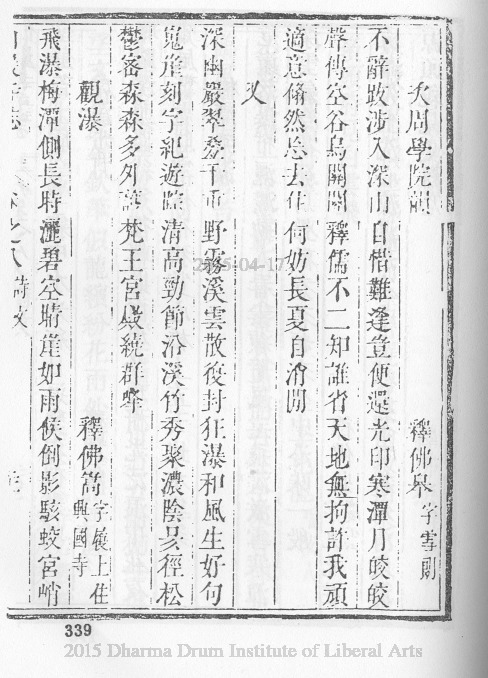 次周學院韻　釋佛㫤字雪
不辭跋涉入深山自惜難逢豈便還光印寒潭月皎皎
聲傳空谷鳥關關釋儒不二知誰省天地無拘許我頑
適意翛然忘去住何妨長夏自消閒
又
深幽嚴翠叅千重野霧溪雲散復封狂瀑和風生好句
嵬崖刻字紀遊蹤清高勁節沿溪竹秀聚濃陰夾徑松
鬱密森森多外護梵王宮殿繞群峰
觀瀑　釋佛嵜字上住興國寺
飛瀑梅潭側長時灑碧空晴崖如雨候倒影駭蛟宮峭
卷之八　詩文
339
2015-04-17
2015 Dharma Drum Institute of Liberal Arts